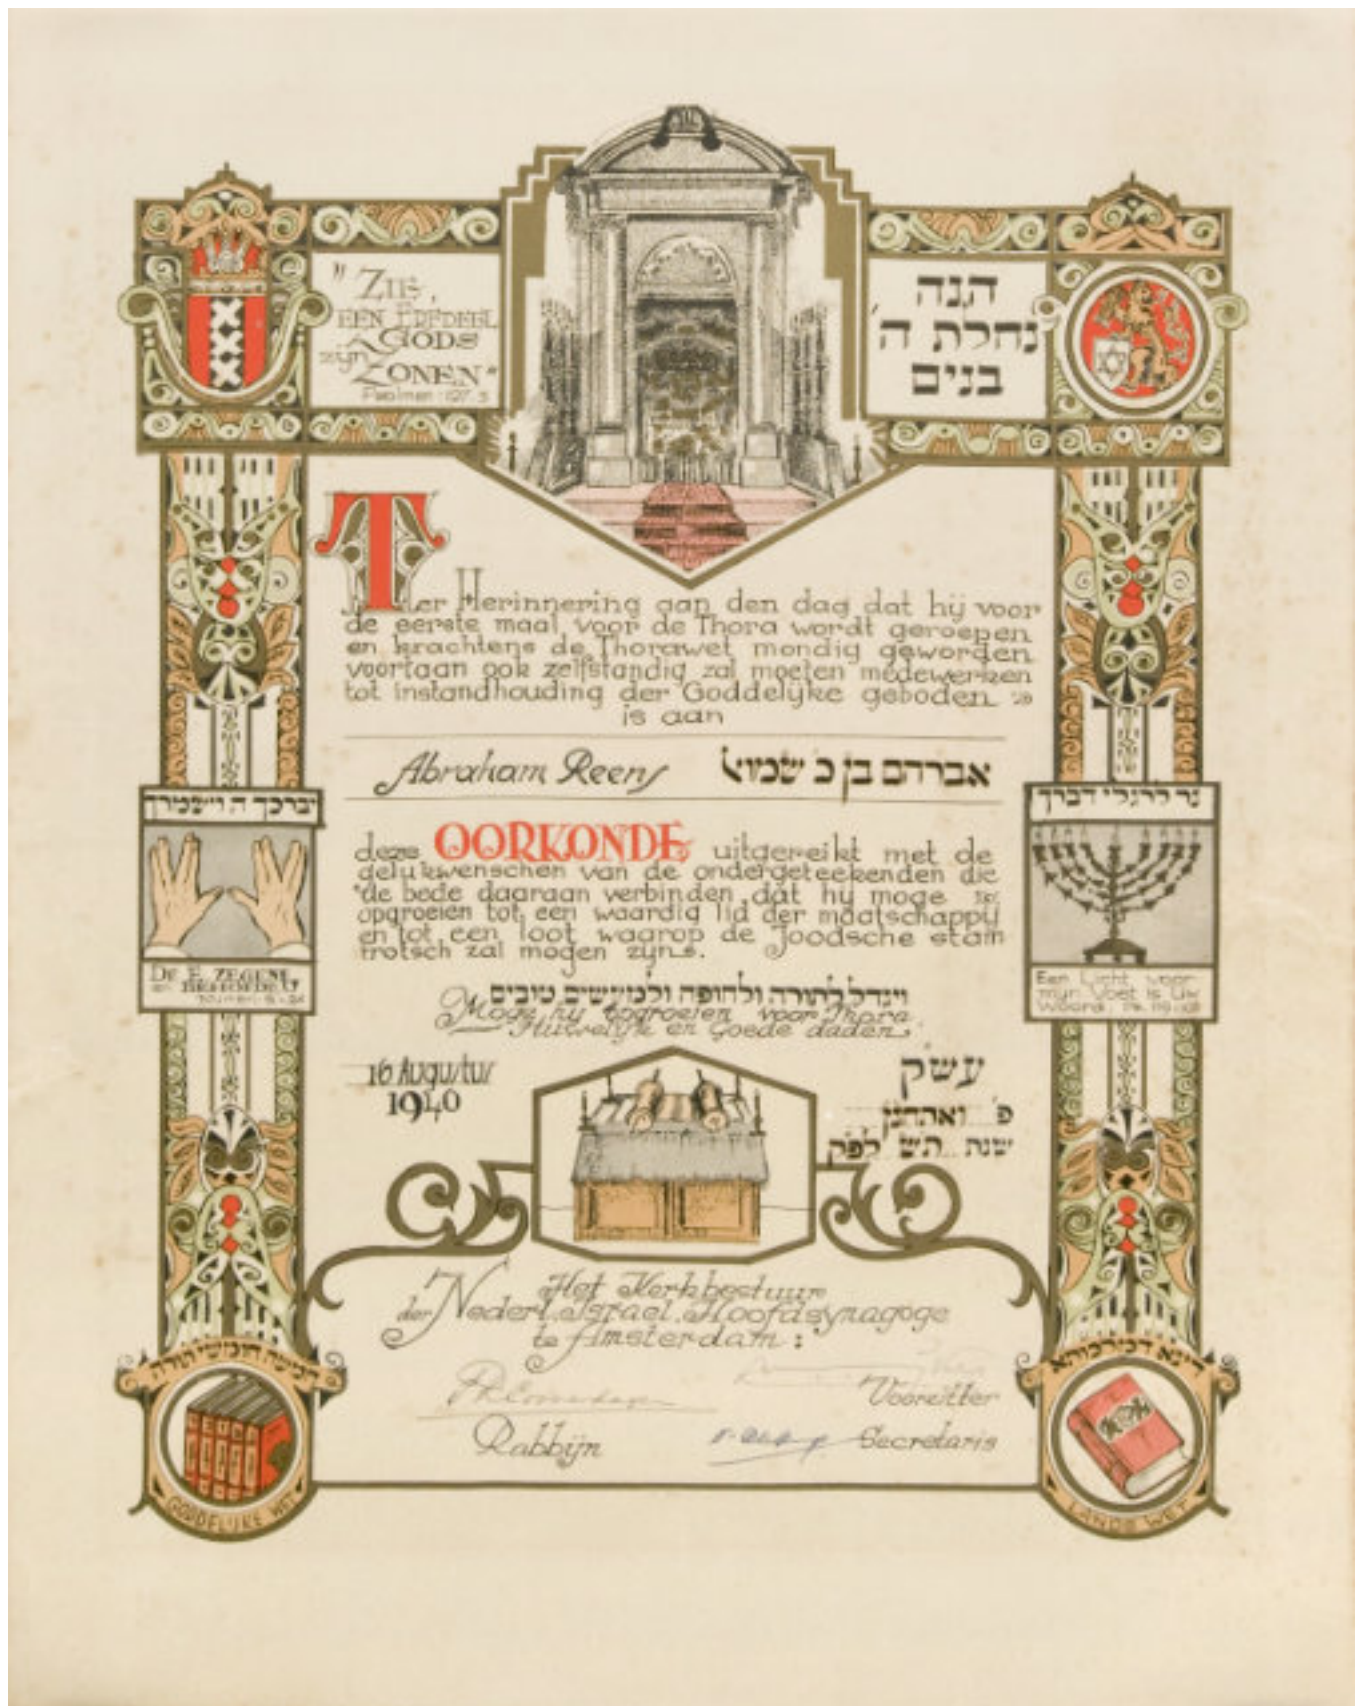 "ZIE,
EEN ERFDEEL
GODS
zijn
ZONEN"
Psalmen: 127.3
הנה
נחלת ה'
בנים
Ter Herinnering aan den dag dat hij voor
de eerste maal voor de Thora wordt geroepen
en krachtens de Thorawet mondig geworden
voortaan ook zelfstandig zal moeten medewerken
tot instandhouding der Goddelijke geboden
is aan
Abraham Reens אברהם בן כ' שמואל
יברכך ה וישמרך
נר לרגלי דברך
deze OORKONDE uitgereikt met de
gelukwenschen van de ondergeteekenden die
de bede daaraan verbinden, dat hij moge
opgroeien tot een waardig lid der maatschappij
en tot een loot waarop de Joodsche stam
trotsch zal mogen zijn.
DE E. ZEGENE
en BEHOEDE U
Een Licht voor
mijn Voet is Uw
Woord. Ps. 119
ויגדל לתורה ולחופה ולמעשים טובים
Moge hij opgroeien voor Thora
Huwelijk en Goede daden.
16 Augustus
1940
עש"ק
פ' ואתחנן
שנת תש לפק
Het Kerkbestuur
der Nederl. Israel. Hoofdsynagoge
te Amsterdam:
Voorzitter
Rabbijn
Secretaris
חמשה חומשי תורה
GODDELIJKE WET
דינא דמלכותא
LANDS WET